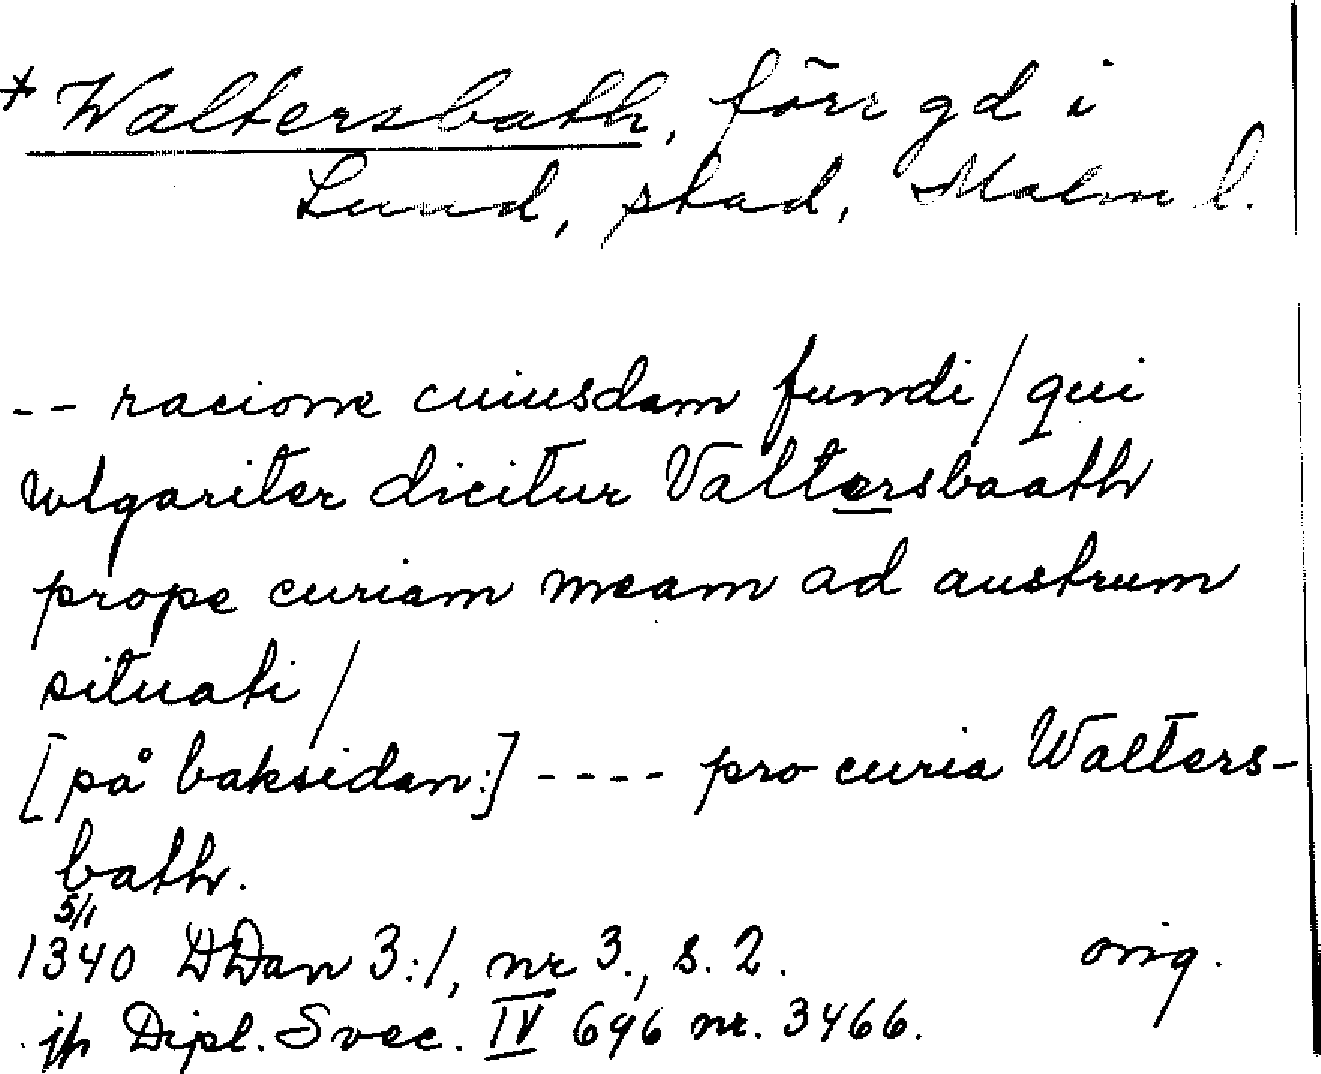 * Waltersbath, förr gd i
Lund, stad, Malm l.
-- racione cuiusdam fundi / qui
wlgariter dicitur Valtersbaath
prope curiam meam ad austrum
situati /
[på baksidan:] ---- pro curia Walters-
bath.
5/1
1340 DDan 3:1, nr 3., s. 2. orig.
jfr Dipl. Svec. IV 696 nr. 3466.